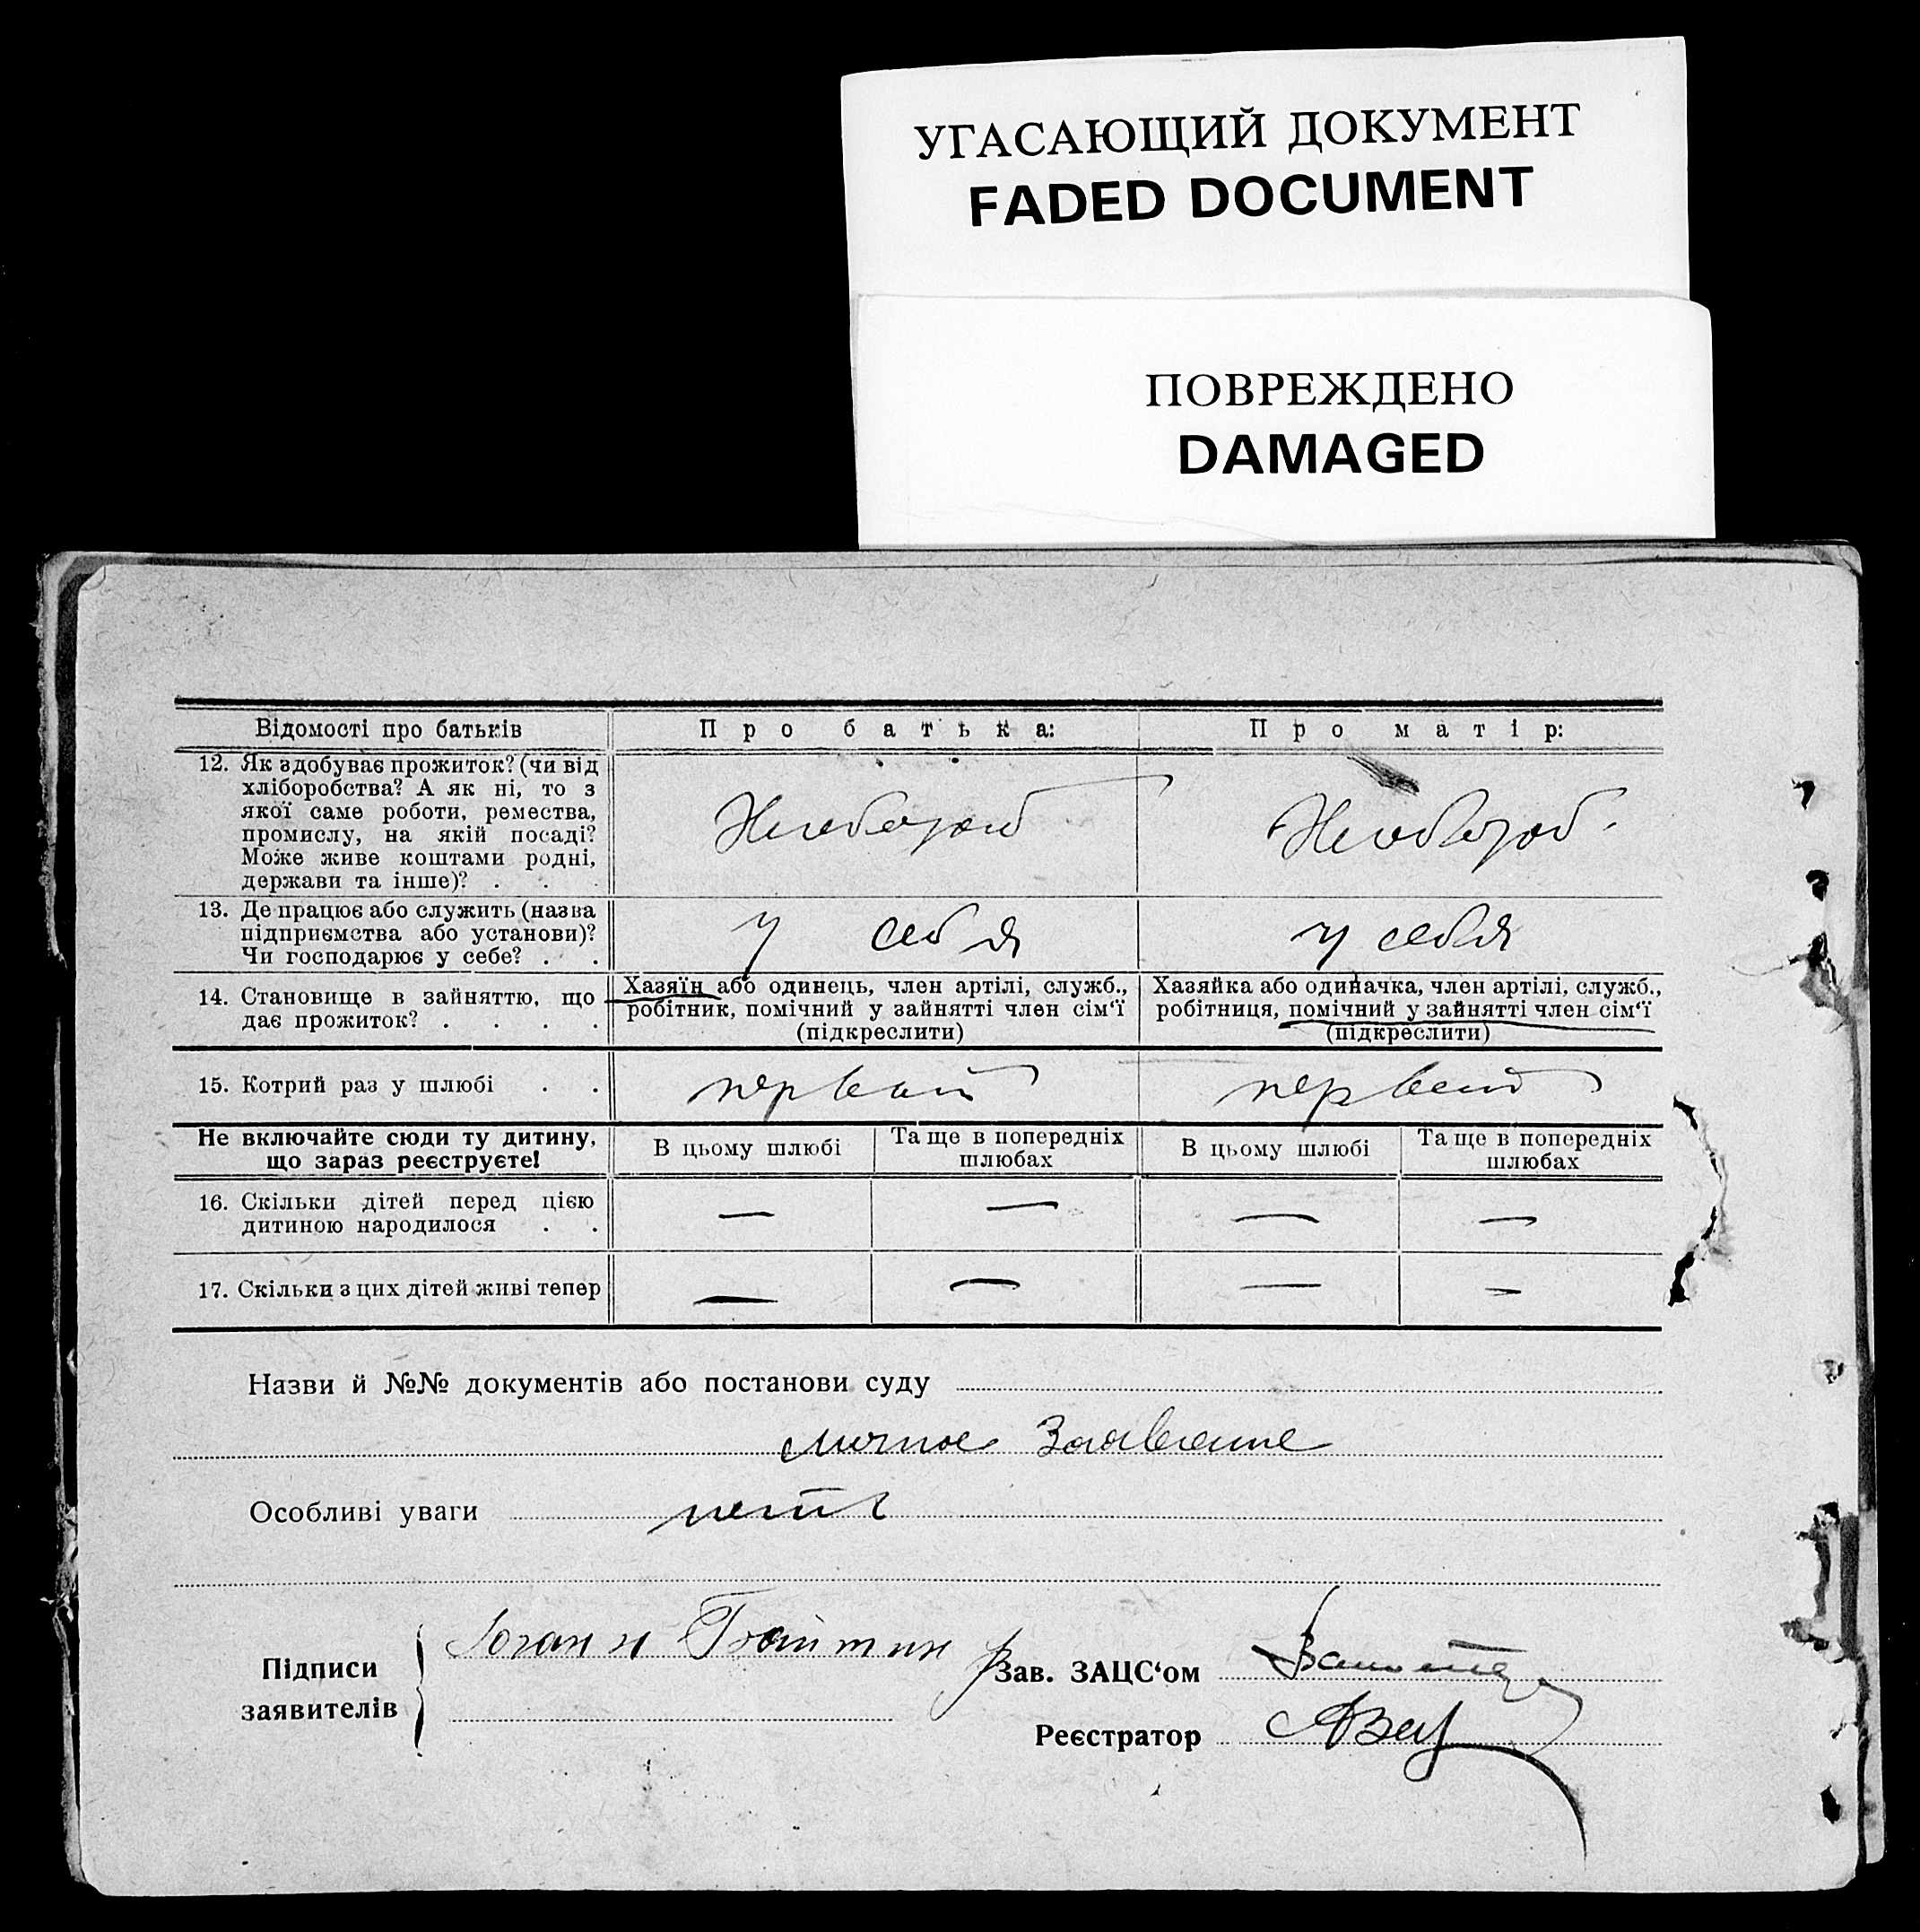 УГАСАЮЩИЙ ДОКУМЕНТ
FADED DOCUMENT
ПОВРЕЖДЕНО
DAMAGED
Відомості про батьків
Про батька:
Про матір:
12. Як здобуває прожиток? (чи від
хліборобства? А як ні, то з
якої саме роботи, ремества,
промислу, на якій посаді?
Може живе коштами родні,
держави та інше)? . . .
Хлебороб
Хлебороб.
13. Де працює або служить (назва
підприємства або установи)?
Чи господарює у себе? . .
у себя
у себя
14. Становище в зайняттю, що
дає прожиток? . . . .
Хазяїн або одинець, член артілі, служб.,
робітник, помічний у зайнятті член сім‘ї
(підкреслити)
Хазяйка або одиначка, член артілі, служб.,
робітниця, помічний у зайнятті член сім‘ї
(підкреслити)
15. Котрий раз у шлюбі . .
первый
первый
Не включайте сюди ту дитину,
що зараз реєструєте!
В цьому шлюбі
Та ще в попередніх
шлюбах
В цьому шлюбі
Та ще в попередніх
шлюбах
16. Скільки дітей перед цією
дитиною народилося . .
— — — —
17. Скільки з цих дітей живі тепер
— — — —
Назви й №№ документів або постанови суду
личное Заявление
Особливі уваги
нетъ
Підписи
заявителів
Зав. ЗАЦС‘ом
Реєстратор